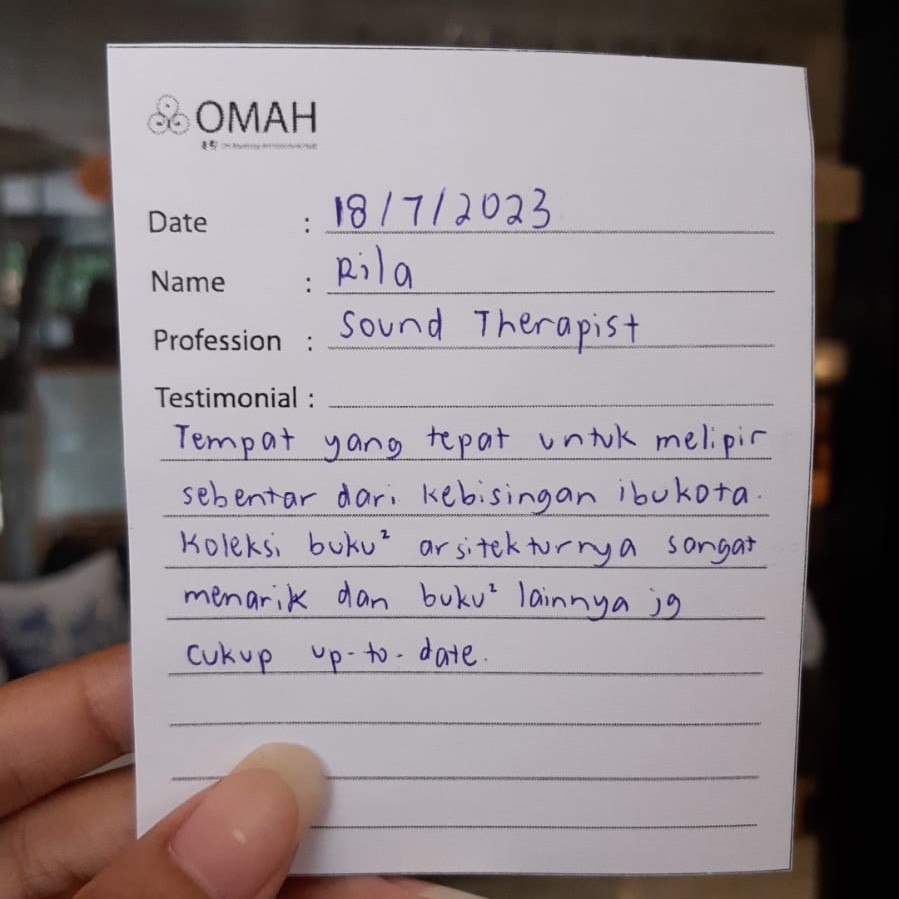 OMAH
Date : 18/7/2023
Name : Rila
Profession : Sound Therapist
Testimonial :
Tempat yang tepat untuk melipir
sebentar dari kebisingan ibukota.
Koleksi buku² arsitekturnya sangat
menarik dan buku² lainnya jg
cukup up-to-date.